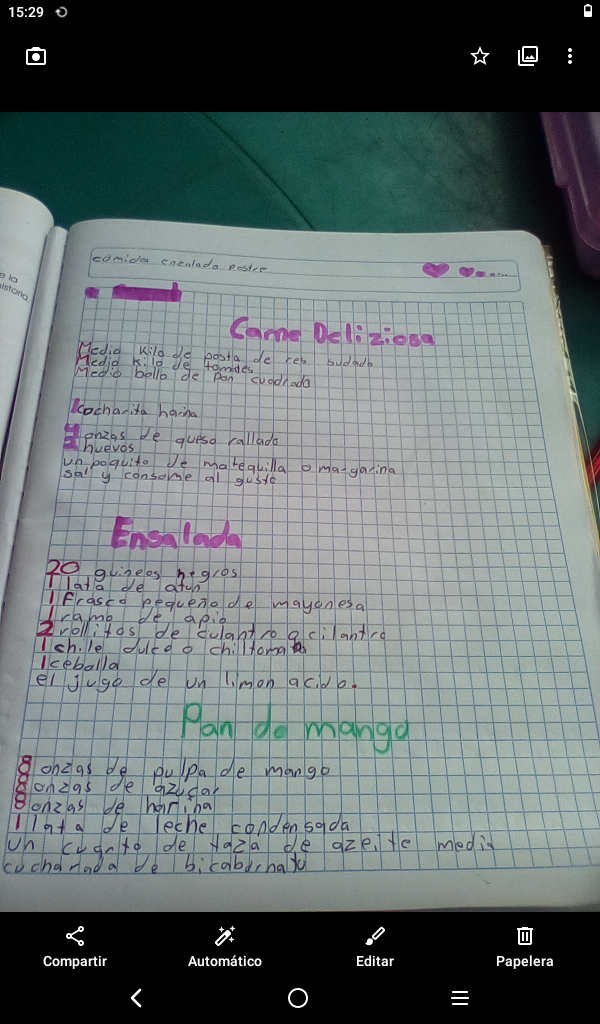 15:29
e la
istoria
comida enenlada postre
Carne Deliziosa
Medio kilo de posta de res sudado
Medio kilo de tomates
Medio bollo de pan cuadrado
1cocharita harina
4 onzas de queso rallado
2 huevos
un poquito de matequilla o margarina
sal y consome al gusto
Ensalada
20 guineos negros
1 lata de atun
1 frasco pequeño de mayonesa
1 ramo de apio
2 rollitos de culantro o cilantro
1 chile dulce o chiltoma
1 cebolla
el jugo de un limon acido.
Pan de mango
8 onzas de pulpa de mango
8 onzas de azucar
8 onzas de harina
1 lata de leche condensada
un cuarto de taza de azeite media
cucharada de bicaborhato
Compartir
Automático
Editar
Papelera